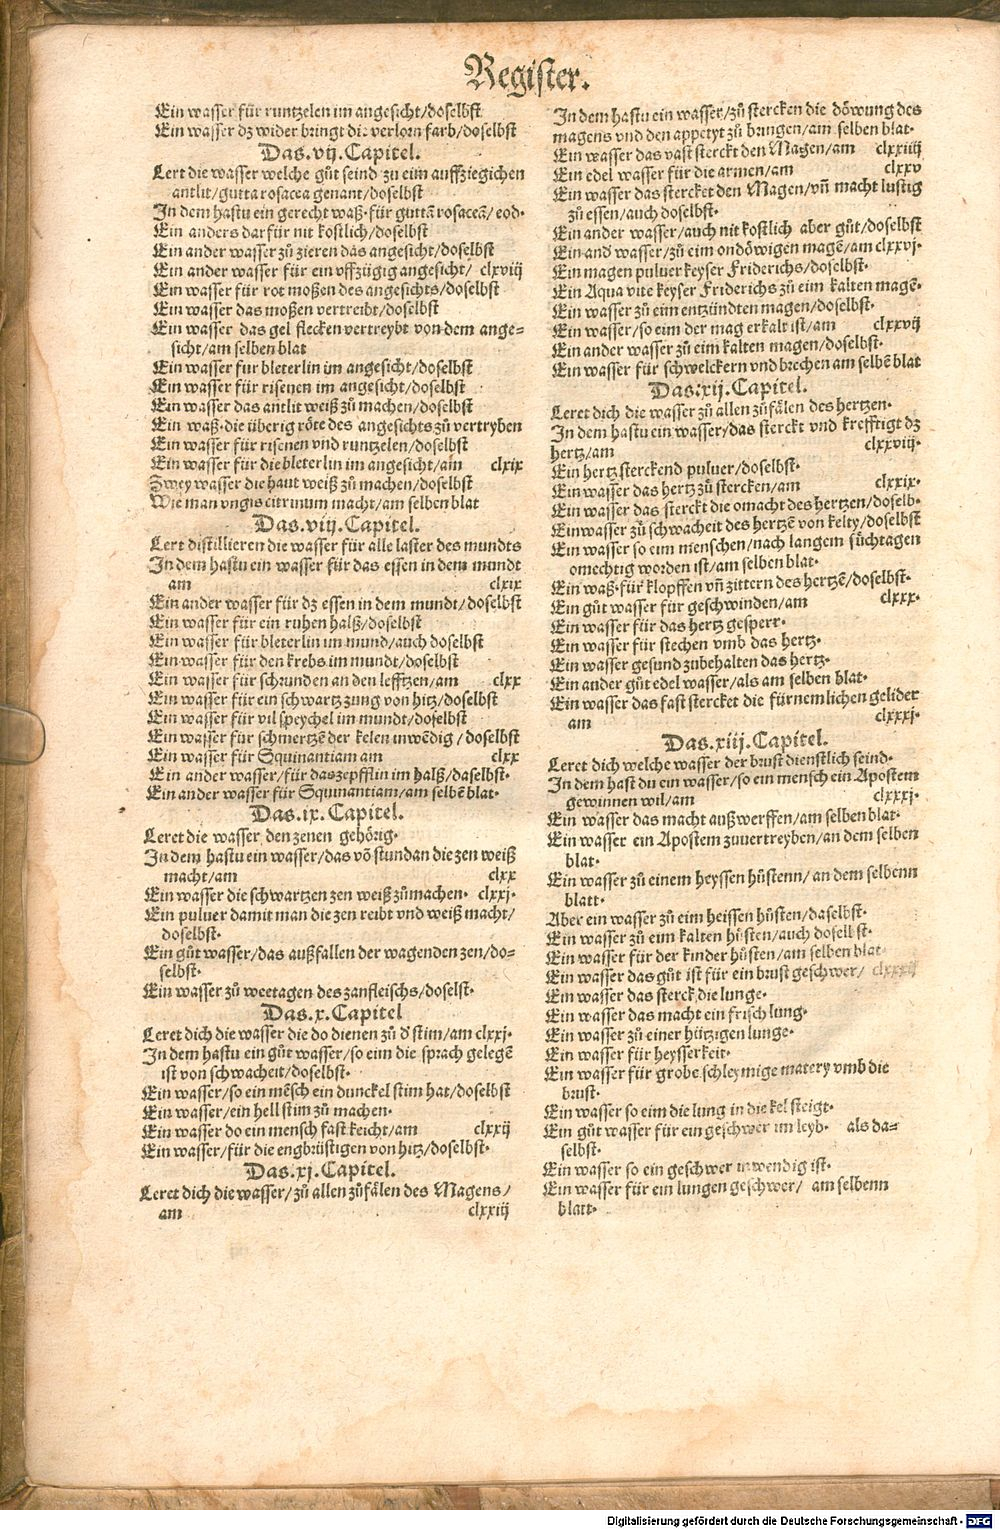 Register.
Ein wasser für runtzelen im angesicht/doselbst
Ein wasser dz wider bringt die verlorn farb/doselbst
Das.vij.Capitel.
Lert die wasser welche gůt seind zu eim auffziegichen
antlit/gutta rosacea genant/doselbst
In dem hastu ein gerecht waß·für guttā rosaceā/eod·
Ein anders darfür nit kostlich/doselbst
Ein ander wasser zů zieren das angesicht/doselbst
Ein ander wasser für ein vffzügig angesicht/ clxviij
Ein wasser für rot moßen des angesichts/doselbst
Ein wasser das moßen vertreibt/doselbst
Ein wasser das gel flecken vertreybt von dem ange=
sicht/am selben blat
Ein wasser fur bleterlin im angesicht/doselbst
Ein wasser für risenen im angesicht/doselbst
Ein wasser das antlit weiß zů machen/doselbst
Ein waß·die überig röte des angesichts zů vertryben
Ein wasser für risenen vnd runtzelen/doselbst
Ein wasser für die bleterlin im angesicht/am clxix
Zwey wasser die haut weiß zů machen/doselbst
Wie man vngis citrinum macht/am selben blat
Das.viij.Capitel.
Lert distillieren die wasser für alle laster des mundts
In dem hastu ein wasser für das essen in dem mundt
am clxix
Ein ander wasser für dz essen in dem mundt/doselbst
Ein wasser für ein ruhen halß/doselbst
Ein wasser für bleterlin im mund/auch doselbst
Ein wasser für den krebs im mundt/doselbst
Ein wasser für schrunden an den lefftzen/am clxx
Ein wasser für ein schwartz zung von hitz/doselbst
Ein wasser für vil speychel im mundt/doselbst
Ein wasser für schmertzē der kelen inwēdig/doselbst
Ein wasser für Squinantiam am clxx
Ein ander wasser/für das zepfflin im halß/daselbst·
Ein ander wasser für Squinantiam/am selbē blat·
Das.ix.Capitel.
Leret die wasser den zenen gehörig·
In dem hastu ein wasser/das vō stundan die zen weiß
macht/am clxx
Ein wasser die schwartzen zen weiß zůmachen· clxxj·
Ein puluer damit man die zen reibt vnd weiß macht/
doselbst·
Ein gůt wasser/das außfallen der wagenden zen/do=
selbst·
Ein wasser zů weetagen des zanfleischs/doselst·
Das.x.Capitel
Leret dich die wasser die do dienen zů d' stim/am clxxj·
In dem hastu ein gůt wasser/so eim die sprach gelegē
ist von schwacheit/doselbst·
Ein wasser/so ein mēsch ein dunckel stim hat/doselbst
Ein wasser/ein hell stim zů machen·
Ein wasser do ein mensch fast keicht/am clxxij
Ein wasser/für die engbrüstigen von hitz/doselbst·
Das.xj.Capitel.
Leret dich die wasser/zů allen zůfälen des Magens/
am clxxiij
In dem hastu ein wasser/zů stercken die döwung des
magens vnd den appetyt zů bringen/am selben blat·
Ein wasser das vast sterckt den Magen/am clxxiiij
Ein edel wasser für die armen/am clxxv
Ein wasser das stercket den Magen/vn̄ macht lustig
zů essen/auch doselbst·
Ein ander wasser/auch nit kostlich aber gůt/doselbst
Ein and wasser/zů eim ondöwigen magē/am clxxvj·
Ein magen puluer keyser Friderichs/doselbst·
Ein Aqua vite keyser Friderichs zů eim kalten magē·
Ein wasser zů eim entzündten magen/doselbst·
Ein wasser/so eim der mag erkalt ist/am clxxvij
Ein ander wasser zů eim kalten magen/doselbst·
Ein wasser für schwelckern vnd brechen am selbē blat
Das.xij.Capitel.
Leret dich die wasser zů allen zůfälen des hertzen·
In dem hastu ein wasser/das sterckt vnd krefftigt dz
hertz/am clxxviij·
Ein hertz sterckend puluer/doselbst·
Ein wasser das hertz zů stercken/am clxxix·
Ein wasser das sterckt die omacht des hertzen/doselb·
Ein wasser zů schwacheit des hertzē von kelty/doselbst
Ein wasser so eim menschen/nach langem süchtagen
omechtig worden ist/am selben blat·
Ein waß·für klopffen vn̄ zittern des hertzē/doselbst·
Ein gůt wasser für geschwinden/am clxxx·
Ein wasser für das hertz gesperr·
Ein wasser für stechen vmb das hertz·
Ein wasser gesund zubehalten das hertz·
Ein ander gůt edel wasser/als am selben blat·
Ein wasser das fast stercket die fürnemlichen gelider
am clxxxj·
Das.xiij.Capitel.
Leret dich welche wasser der brust dienstlich seind·
In dem hast du ein wasser/so ein mensch ein Apostem
gewinnen wil/am clxxxj·
Ein wasser das macht außwerffen/am selben blat·
Ein wasser ein Apostem zuuertreyben/an dem selben
blat·
Ein wasser zů einem heyssen hůstenn/an dem selbenn
blatt·
Aber ein wasser zů eim heissen hůsten/daselbst·
Ein wasser zů eim kalten hůsten/auch doselbst·
Ein wasser für der kinder hůsten/am selben blat
Ein wasser das gůt ist für ein brust geschwer/ clxxxij
Ein wasser das sterck die lunge·
Ein wasser das macht ein frisch lung·
Ein wasser zů einer hützigen lunge·
Ein wasser für heysserkeit·
Ein wasser für grobe schleymige matery vmb die
brust·
Ein wasser so eim die lung in die kel steigt·
Ein gůt wasser für ein geschwer im leyb· als da=
selbst·
Ein wasser so ein geschwer inwendig ist·
Ein wasser für ein lungen geschwer/ am selbenn
blatt·
Digitalisierung gefördert durch die Deutsche Forschungsgemeinschaft - DFG